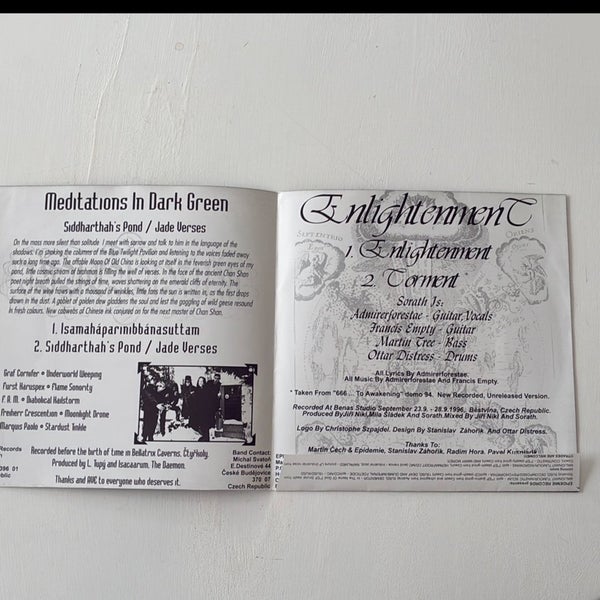 Meditations In Dark Green
Siddharthah's Pond / Jade Verses
On the moss more silent than solitude I meet with sorrow and talk to him in the language of the
shadows. I'm stroking the columns of the Blue Twilight Pavilion and listening to the voices faded away
such a long time ago. The affable Moon Of Old China is looking at itself in the feverish green eyes of my
pond, little cosmic dream of brahman is filling the well of verses. In the face of the ancient Chan Shan
poet night breath pulled the strings of time, waves shattering on the emerald cliffs of eternity. The
surface of the wine frowns with a thousand of wrinkles, little fans the sun is written in, as the first drops
drown in the dust. A goblet of golden dew gladdens the soul and lest the gaggling of wild geese resound
in fresh colours. New cabinets of Chinese ink conjured on for the next master of Chan Shan.
1. Isamaháparinibbánasuttam
2. Siddharthah's Pond / Jade Verses
Graf Cornifer • Underworld Weeping
Furst Haruspex • Flame Sonority
F. A. M. • Diabolical Hailstorm
Freiherr Crescentium • Moonlight Drone
Marquas Paolo • Stardust Tinkle
Records
396 01
public
Recorded before the birth of time in Bellatrix Caverns, Čtyřkoly.
Produced by L. Tupý and Isacaarum, The Daemon.
Thanks and AVE to everyone who deserves it.
Band Contact:
Michal Svatoň
E.Destinové 44
České Budějovice
370 07
Czech Republic
Enlightenment
Septentrio
Oriens
1. Enlightenment
2. Torment
Sorath Is:
Admirerforestae - Guitar, Vocals
Francis Empty - Guitar
Martin Tree - Bass
Ottar Distress - Drums
All Lyrics By Admirerforestae.
All Music By Admirerforestae And Francis Empty.
* Taken From "666 ... To Awakening" demo 94. New Recorded, Unreleased Version.
Recorded At Benas Studio September 23.9. - 28.9.1996, Běstvina, Czech Republic.
Produced By Jiří Nikl, Míla Sládek And Sorath. Mixed By Jiří Nikl And Sorath.
Logo By Christophe Szpajdel. Design By Stanislav Záhořík. And Ottar Distress.
Thanks To:
Martin Čech & Epidemie, Stanislav Záhořík, Radim Hora, Pavel
EPIDEMIE RECORDS presents: